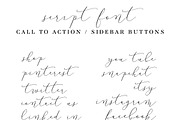 script font
CALL TO ACTION / SIDEBAR BUTTONS
shop
pinterest
twitter
contact us
linked in
you tube
snapchat
etsy
instagram
facebook